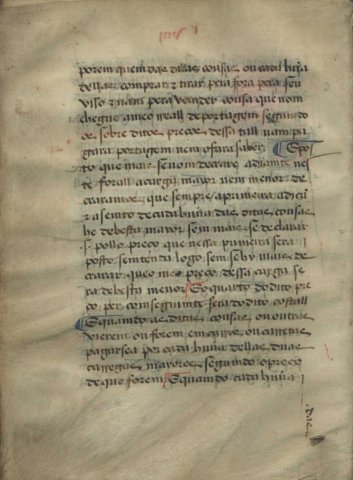 porem quem das ditas cousas ou cada huũa
dellas comprar e tirar pera fora pera seu
uso e nam pera vender cousa que nom
chegue a meo Reall de portagem segundo
os sobre ditos preços dessa tall nam pa
gara portagem nem o fara saber. E pos
to que mais se nom decrare adiante nes
te forall a carga mayor nem menor de
craramos que sempre a primeira adiçã
e asento de cada huũa das ditas cousas
he de besta mayor sem mais se declarar
.s. pollo preço que nessa primeira sera
posto sentenda logo sem se hy mais de
crarar que o meo preço dessa carga se
ra de besta menor E o quarto do dito pre
ço per conseguinte seu do dito costall
E quando as ditas cousas ou outras
vierem ou forem em carros ou carretas
pagarsea por cada huũa dellas duas
carregas mayores segundo o preço
de que forem E quando cada huũa